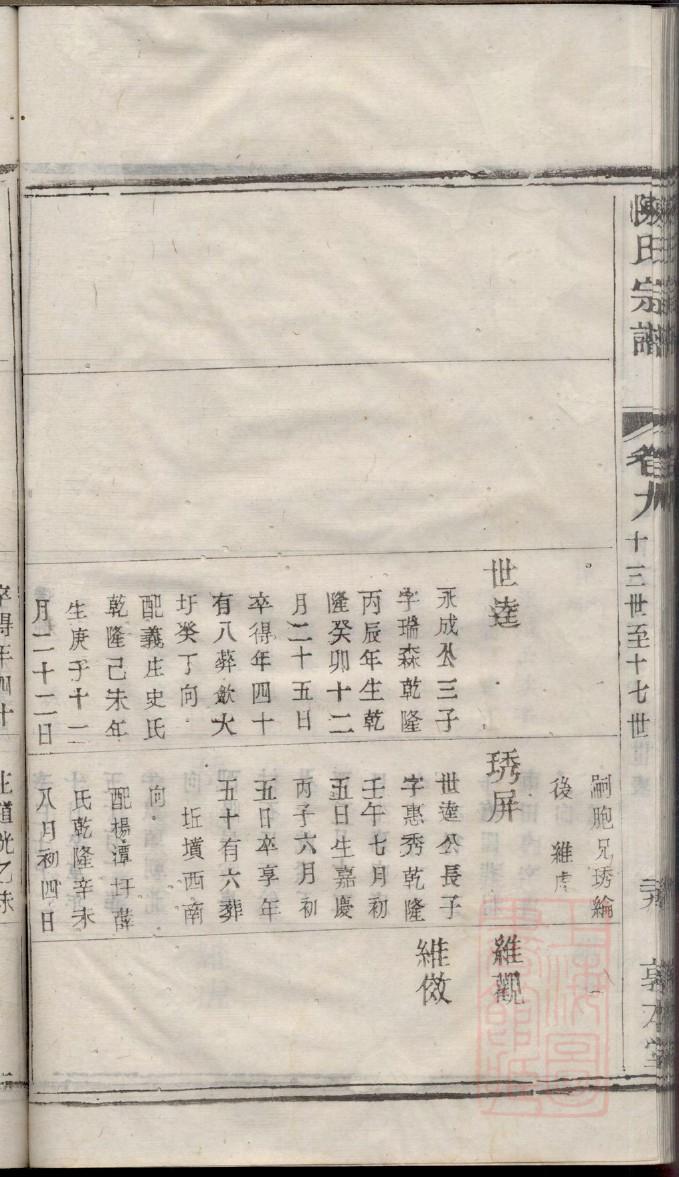 陳氏宗譜
卷九
十三世至十七世
敦本堂
世達
永成公三子
字瑞森乾隆
丙辰年生乾
隆癸卯十二
月二十五日
卒得年四十
有八葬歛大
圩癸丁向
配義庄史氏
乾隆己未年
生庚子十一
月二十二日
嗣胞兄琇綸
後 維虎
琇屏
世達公長子
字惠秀乾隆
壬午七月初
五日生嘉慶
丙子六月初
五日卒享年
五十有六葬
坵墳西南
向
配楊潭圩薛
氏乾隆辛未
八月初四日
維觀
維傚